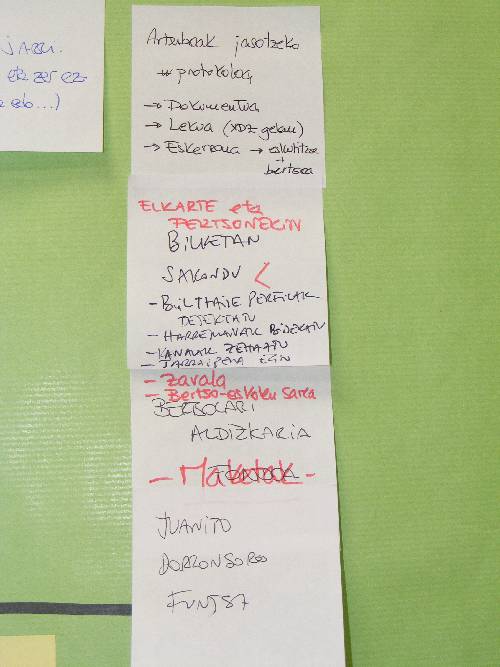 JARRI.
eta zer ez
edo...)
Artxiboak jasotzeko
# protokoloa
→ Dokumentua
→ Lekua (XDZ gelan)
→ Eskerzona → eskulitza
+
bertsoa
ELKARTE eta
PERTSONEKIN
BILKETAN
SAKONDU <
- BILTZAILE PERFILAK
DETEKTATU
- HARREMANAK BIDERATU
- KANALAK ZEHAZTU
- JARRAIPENA EGIN
- Zavala
- Bertso-eskola sarea
BERTSOLARI
ALDIZKARIA
- Maketak -
JUANITO
DORRONSORO
FUNTSA